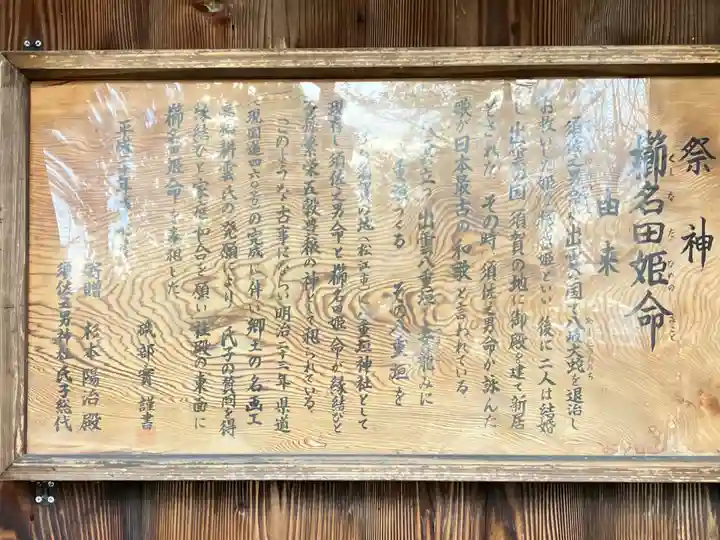 祭神
櫛名田姫命
くしなだひめのみこと
由来
須佐之男命が出雲の国で八岐大蛇を退治し
お救いした姫が櫛名田姫といい 後に二人は結婚
し 出雲の国 須賀の地に御殿を建て新居
とされた その時 須佐之男命が詠んだ
歌が日本最古の和歌と言われている。
八雲立つ 出雲八重垣 妻籠みに
八重垣つくる その八重垣を
の地(松江市)八重垣神社として
現存し 須佐之男命と櫛名田姫命が縁結びと
子孫繁栄 五穀豊穣の神として祀られている。
このような古事にならい明治二十三年 県道
(現国道四六〇号)の完成に伴い郷土の名画工
耕雲氏の発願により 氏子の賛同を得
縁結びと家庭和合を願い社殿の東面に
櫛名田姫命を奉祀した
平成二十年
磯部實謹書
寄贈 杉本陽治殿
須佐之男神社氏子総代